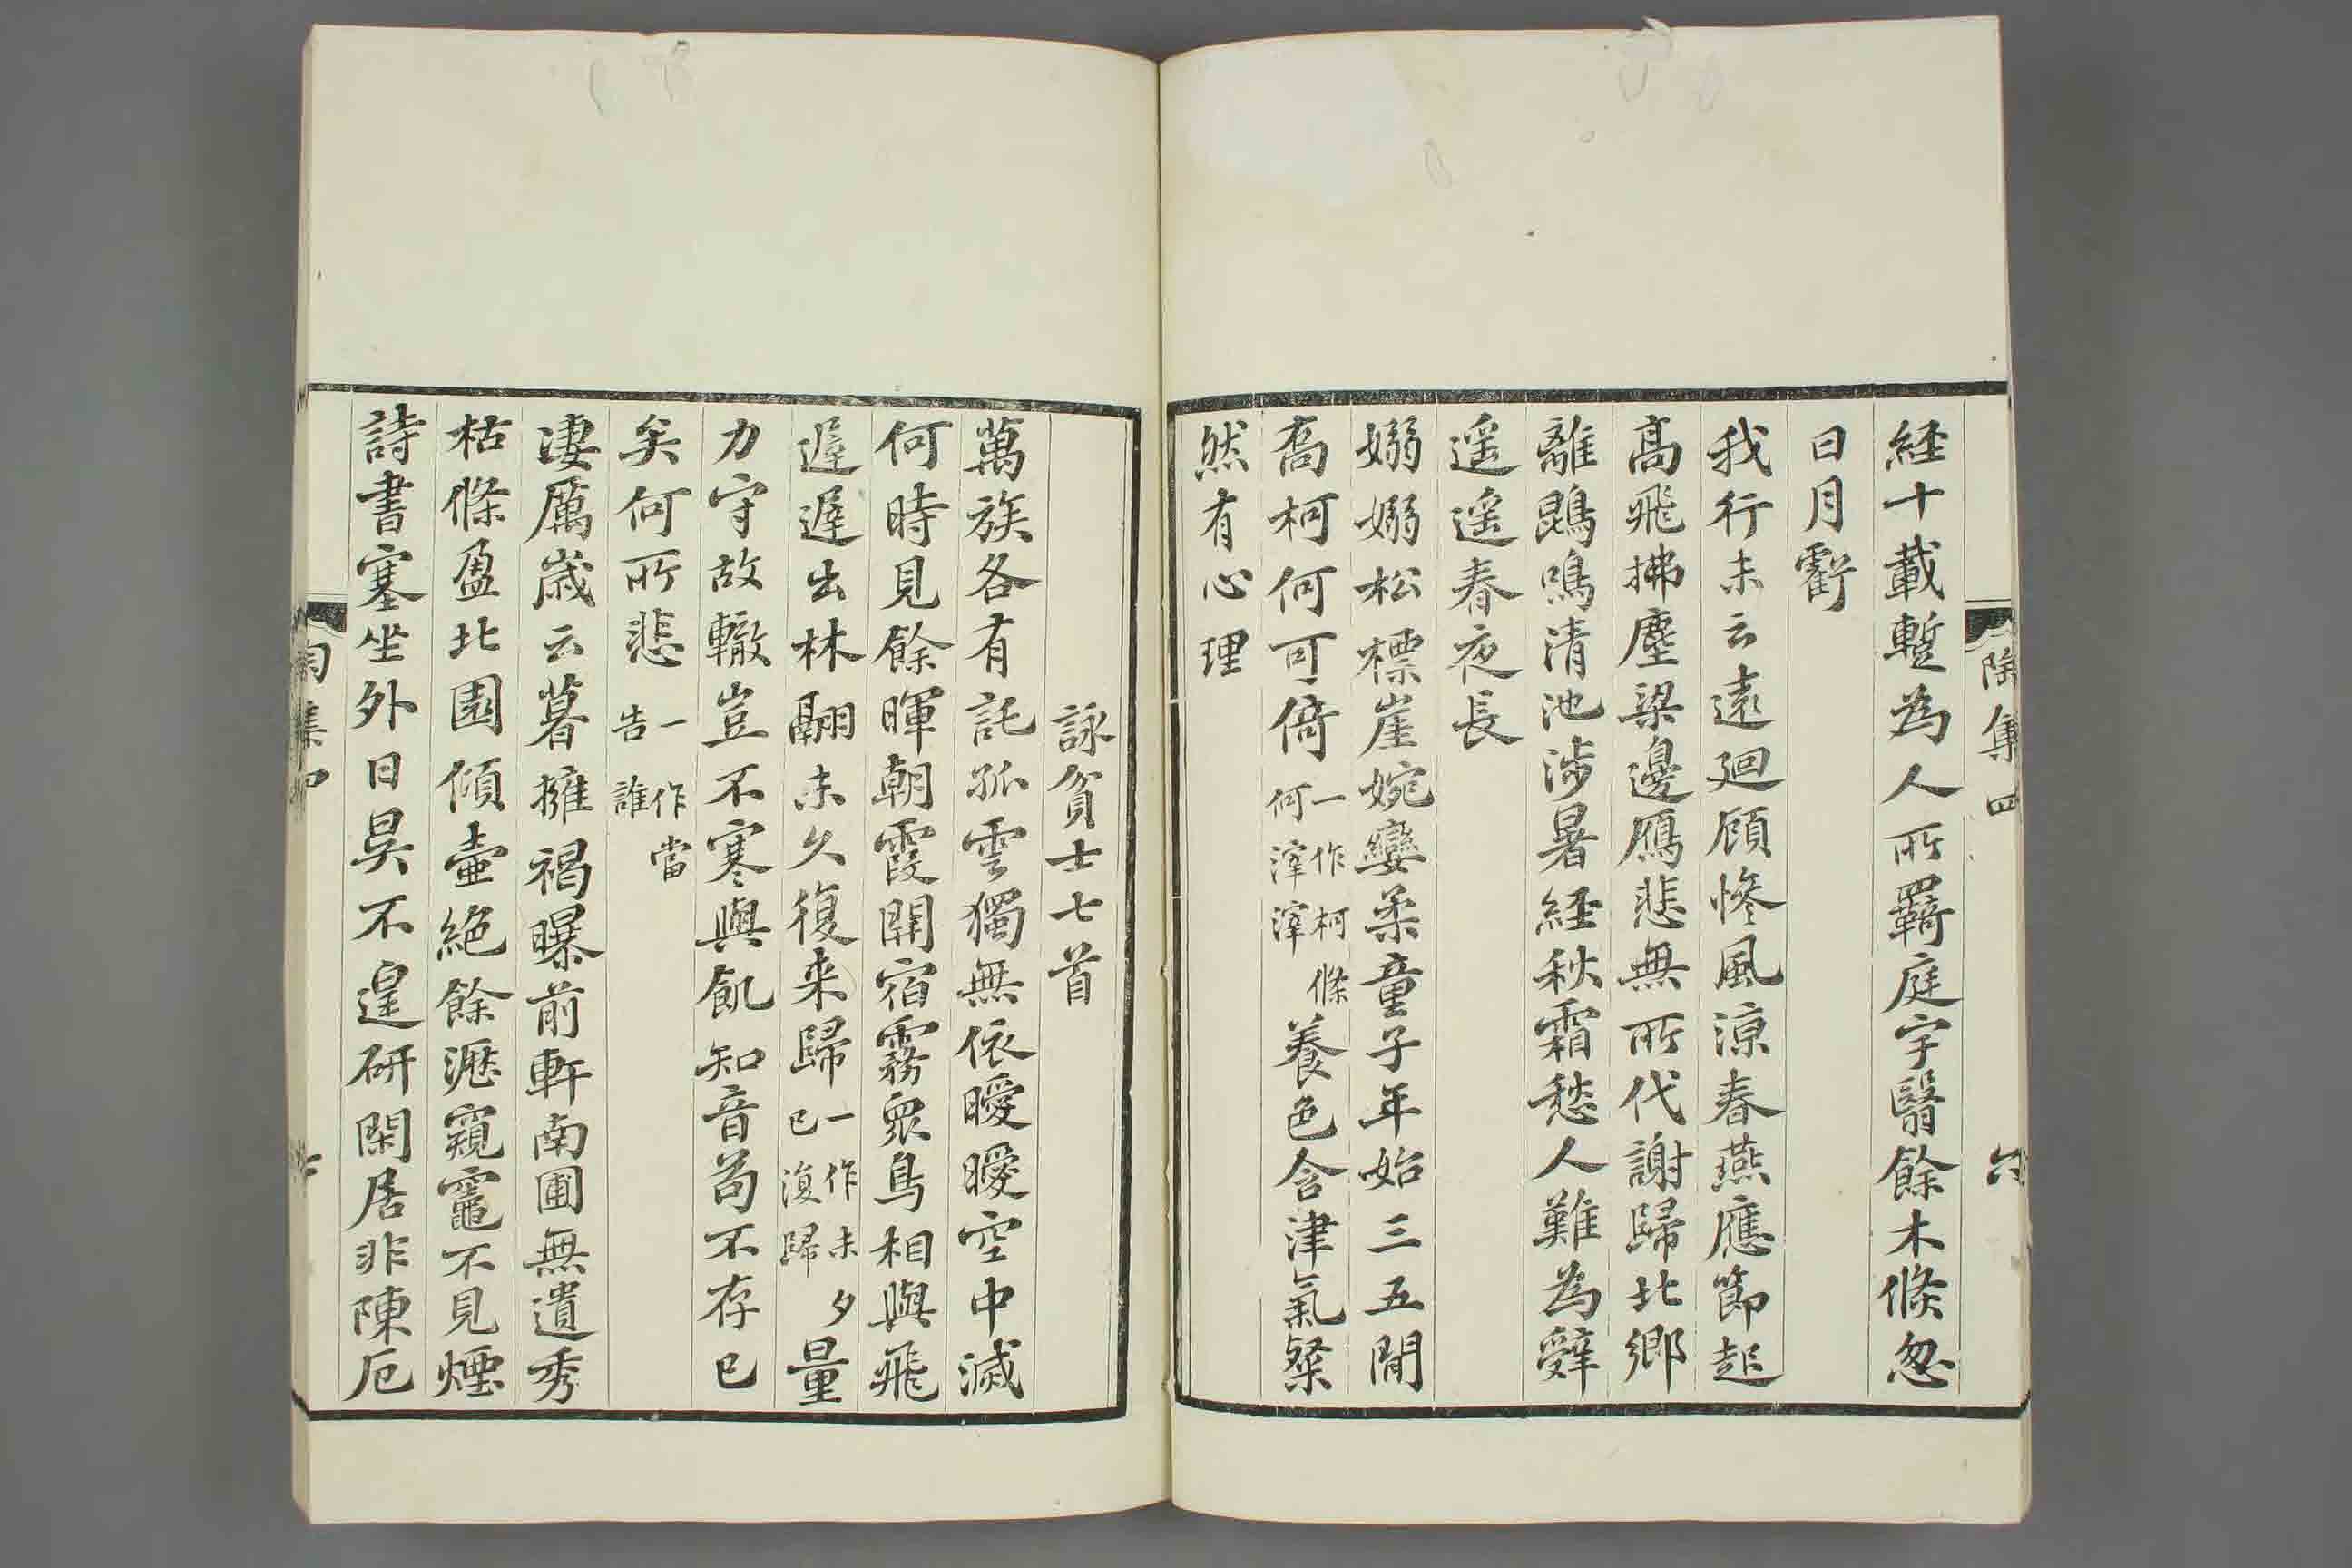 陶集四 六
経十載暫為人所羇庭宇翳餘木倏忽
日月虧
我行未云遠廻顧慘風涼春燕應節起
髙飛拂塵梁邊鴈悲無所代謝歸北郷
離鵾鳴清池涉暑経秋霜愁人難為辤
遥遥春夜長
嫋嫋松標崖婉孌柔童子年始三五間
喬柯何可倚一作柯條何滓滓養色含津氣粲
然有心理
詠貧士七首
萬族各有託孤雲獨無依曖曖空中滅
何時見餘暉朝霞開宿霧衆鳥相與飛
遲遲出林翮未久復来歸一作未夕已復歸量
力守故轍豈不寒與飢知音苟不存已
矣何所悲一作當告誰
凄厲嵗云暮擁褐曝前軒南圃無遺秀
枯條盈北園傾壷絶餘瀝窺竈不見煙
詩書塞坐外日昃不遑研閑居非陳厄
陶集四 七